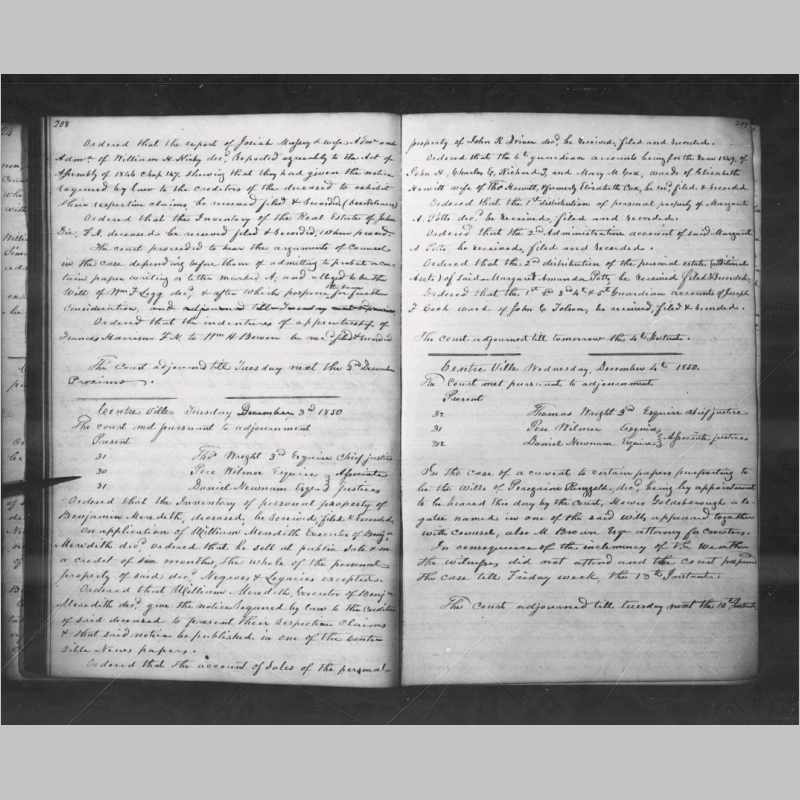 208
Ordered that the report of Josiah Massey & wife Admr and
Admx. of William H. Kirby decd. Reported agreeably to the Act of
Assembly of 1846 Chap 187. showing that they had given the notice
required by law to the creditors of the deceased to exhibit
their respective claims be received filed & recorded
Ordered that the Inventory of the Real Estates of John
deceased be received filed & recorded,
The court proceeded to hear the arguments of Counsel
in the case depending before them of admitting to probate a cer-
tain paper writing a letter marked A, and alleged to be the
Will of Wm. F. Legg decd. & after which postpone for further
consideration, and adjourned till Tuesday
Ordered that the indentures of apprenticeship of
Harrison F. N. to Wm. H. Bowen be recd. filed & recorded
The Court adjourned till Tuesday next the 3d December
Proximo.
Centre Ville Tuesday December 3d 1850
The court met pursuant to adjournment
Present
31 Thos. Wright 3d Esquire Chief justice
30 Pere Wilmer Esquire } Associate
31 Daniel Newnam Esqre } justices
Ordered that the Inventory of personal property of
Benjamin Meredith, deceased, be received, filed & recorded.
On application of William Meredith Executor of Benj.
Meredith decd. ordered that he sell at public sale & on
a credit of six months, the whole of the personal
property of said decd. Negroes & Legacies excepted.
Ordered that William Meredith, Executor of Benj.
Meredith decd. give the notice required by law to the creditors
of said deceased to present their respective claims
& that said notice be published in one of the Centre
Ville News papers.
Ordered that the account of Sales of the personal
209
property of John R. Driver decd. be received, filed and recorded.
Ordered that the guardian accounts being for the year 1849, of
John H, Charles G, Richard T, and Mary M. Cox, wards of Elizabeth
Hewitt wife of Thos. Hewitt, formerly Elizabeth Cox, be recd. filed & recorded
Ordered that the 1st distribution of personal property of Margaret
A. Potts decd. be received, filed and recorded.
Ordered that the 2nd Administrative account of said Margaret
A Potts, be received, filed and recorded.
Ordered that the 2nd distribution of the personal estate (additional
Assets) of said Margaret Amanda Potts be received filed & recorded.
Ordered that the 1st 2d 3d 4th & 5th Guardian accounts of Joseph
F. Cook ward of John C. Tolson, be received, filed & recorded.
The court adjourned till tomorrow the 4th Instant.
Centre Ville Wednesday, December 4th 1850.
The Court met pursuant to adjournment
Present
32 Thomas Wright 3d Esquire chief justice
31 Pere Wilmer Esquire } Associate justices
32 Daniel Newnam Esquire }
In the case of a caveat to certain papers purporting to
be the wills of Peregrine Ringgold, decd. being by appointment
to be heard this day by the court, Howes Goldsborough a le-
gatee named in one of the said wills, appeared together
with counsel, also M. Brown Esqr. attorney for Caveators.
In consequence of the inclemency of the Weather
the witnesses did not attend and the court postponed
the case till Friday week, the 13th Instant.
The court adjourned till tuesday next the 10th Instant